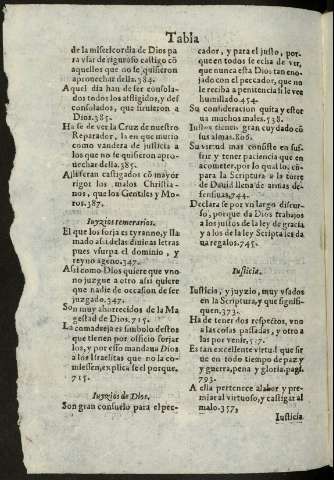 Tabla
de la misericordia de Dios pa
ra vsar de riguroso castigo cō
aquellos que no se quisieron
aprouechar della.384.
Aquel dia han de ser consola-
dos todos los afligidos, y des
consolados, que siruieron a
Dios.385.
Ha se de ver la Cruz de nuestro
Reparador, la en que murio
como vandera de justicia a
los que no se quisieron apro-
uechar della.385.
Alli seran castigados cō mayor
rigor los malos Christia-
nos, que los Gentiles y Mo-
ros.387.
Iuyzios temerarios.
El que los forja es tyranno, y lla
mado assi delas diuinas letras
pues vsurpa el dominio, y
reyno ageno.347.
Assi como Dios quiere que vno
no juzgue a otro assi quiere
que nadie de ocasion de ser
juzgado.347.
Son muy ahorrecidos de la Ma
gestad de Dios.715.
La comadreja es simbolo destos
que tienen por officio forjar
los, y por esso mandaua Dios
a los Israelitas que no la co-
miessen, explica se el porque.
715.
Iuyzios de Dios.
Son gran consuelo para el pec-
cador, y para el justo, por-
que en todos se echa de ver,
que nunca esta Dios tan eno-
jado con el peccador, que no
le reciba a penitencia si le vee
humillado.454.
Su consideracion quita y estor
ua muchos males.538.
Iustos tienen gran cuydado cō
sus almas.806.
Su virtud mas consiste en suf-
frir y tener paciencia que en
acometer, por lo qual los cō-
para la Scriptura a la torre
de Dauid llena de armas de-
fensiuas.744.
Declara se por vn largo discur-
so, porque da Dios trabajos
a los justos de la ley de gracia
y a los de la ley Scripta les da
ua regalos.745.
Iusticia.
Iusticia, y juyzio, muy vsados
en la Scriptura, y que signifi-
quen.373.
Ha de tener dos respectos, vno
a las cosas passadas, y otro a
las por venir.537.
Es tan excellente virtud que sir
ue en todo tiempo de paz y
y guerra, pena y gloria. pagi.
793.
A ella pertenece alabar y pre-
miar al virtuoso, y castigar al
malo.357,
Iusticia